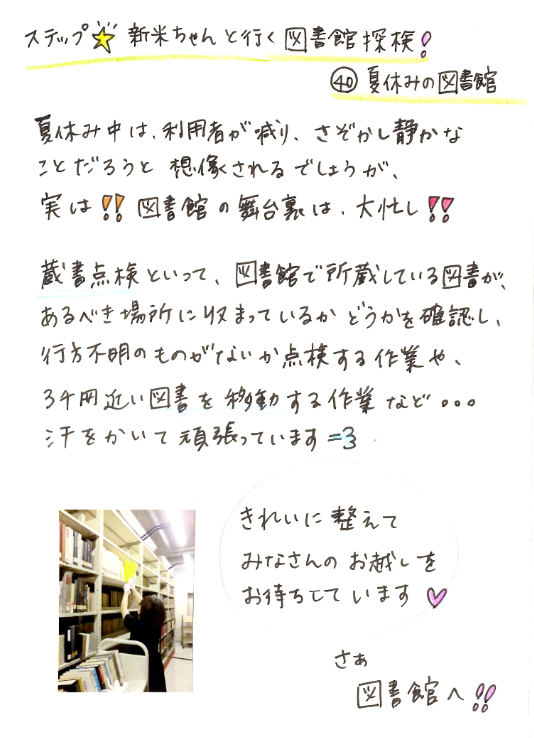 ステップ☆新米ちゃんと行く図書館探検!
㊵夏休みの図書館
夏休み中は、利用者が減り、さぞかし静かな
ことだろうと想像されるでしょうが、
実は!!図書館の舞台裏は、大忙し!!
蔵書点検といって、図書館で所蔵している図書が、
あるべき場所に収まっているかどうかを確認し、
行方不明のものがないか点検する作業や、
3千冊近い図書を移動する作業など...
汗をかいて頑張っています=3
きれいに整えて
みなさんのお越しを
お待ちしています♡
さあ
図書館へ!!